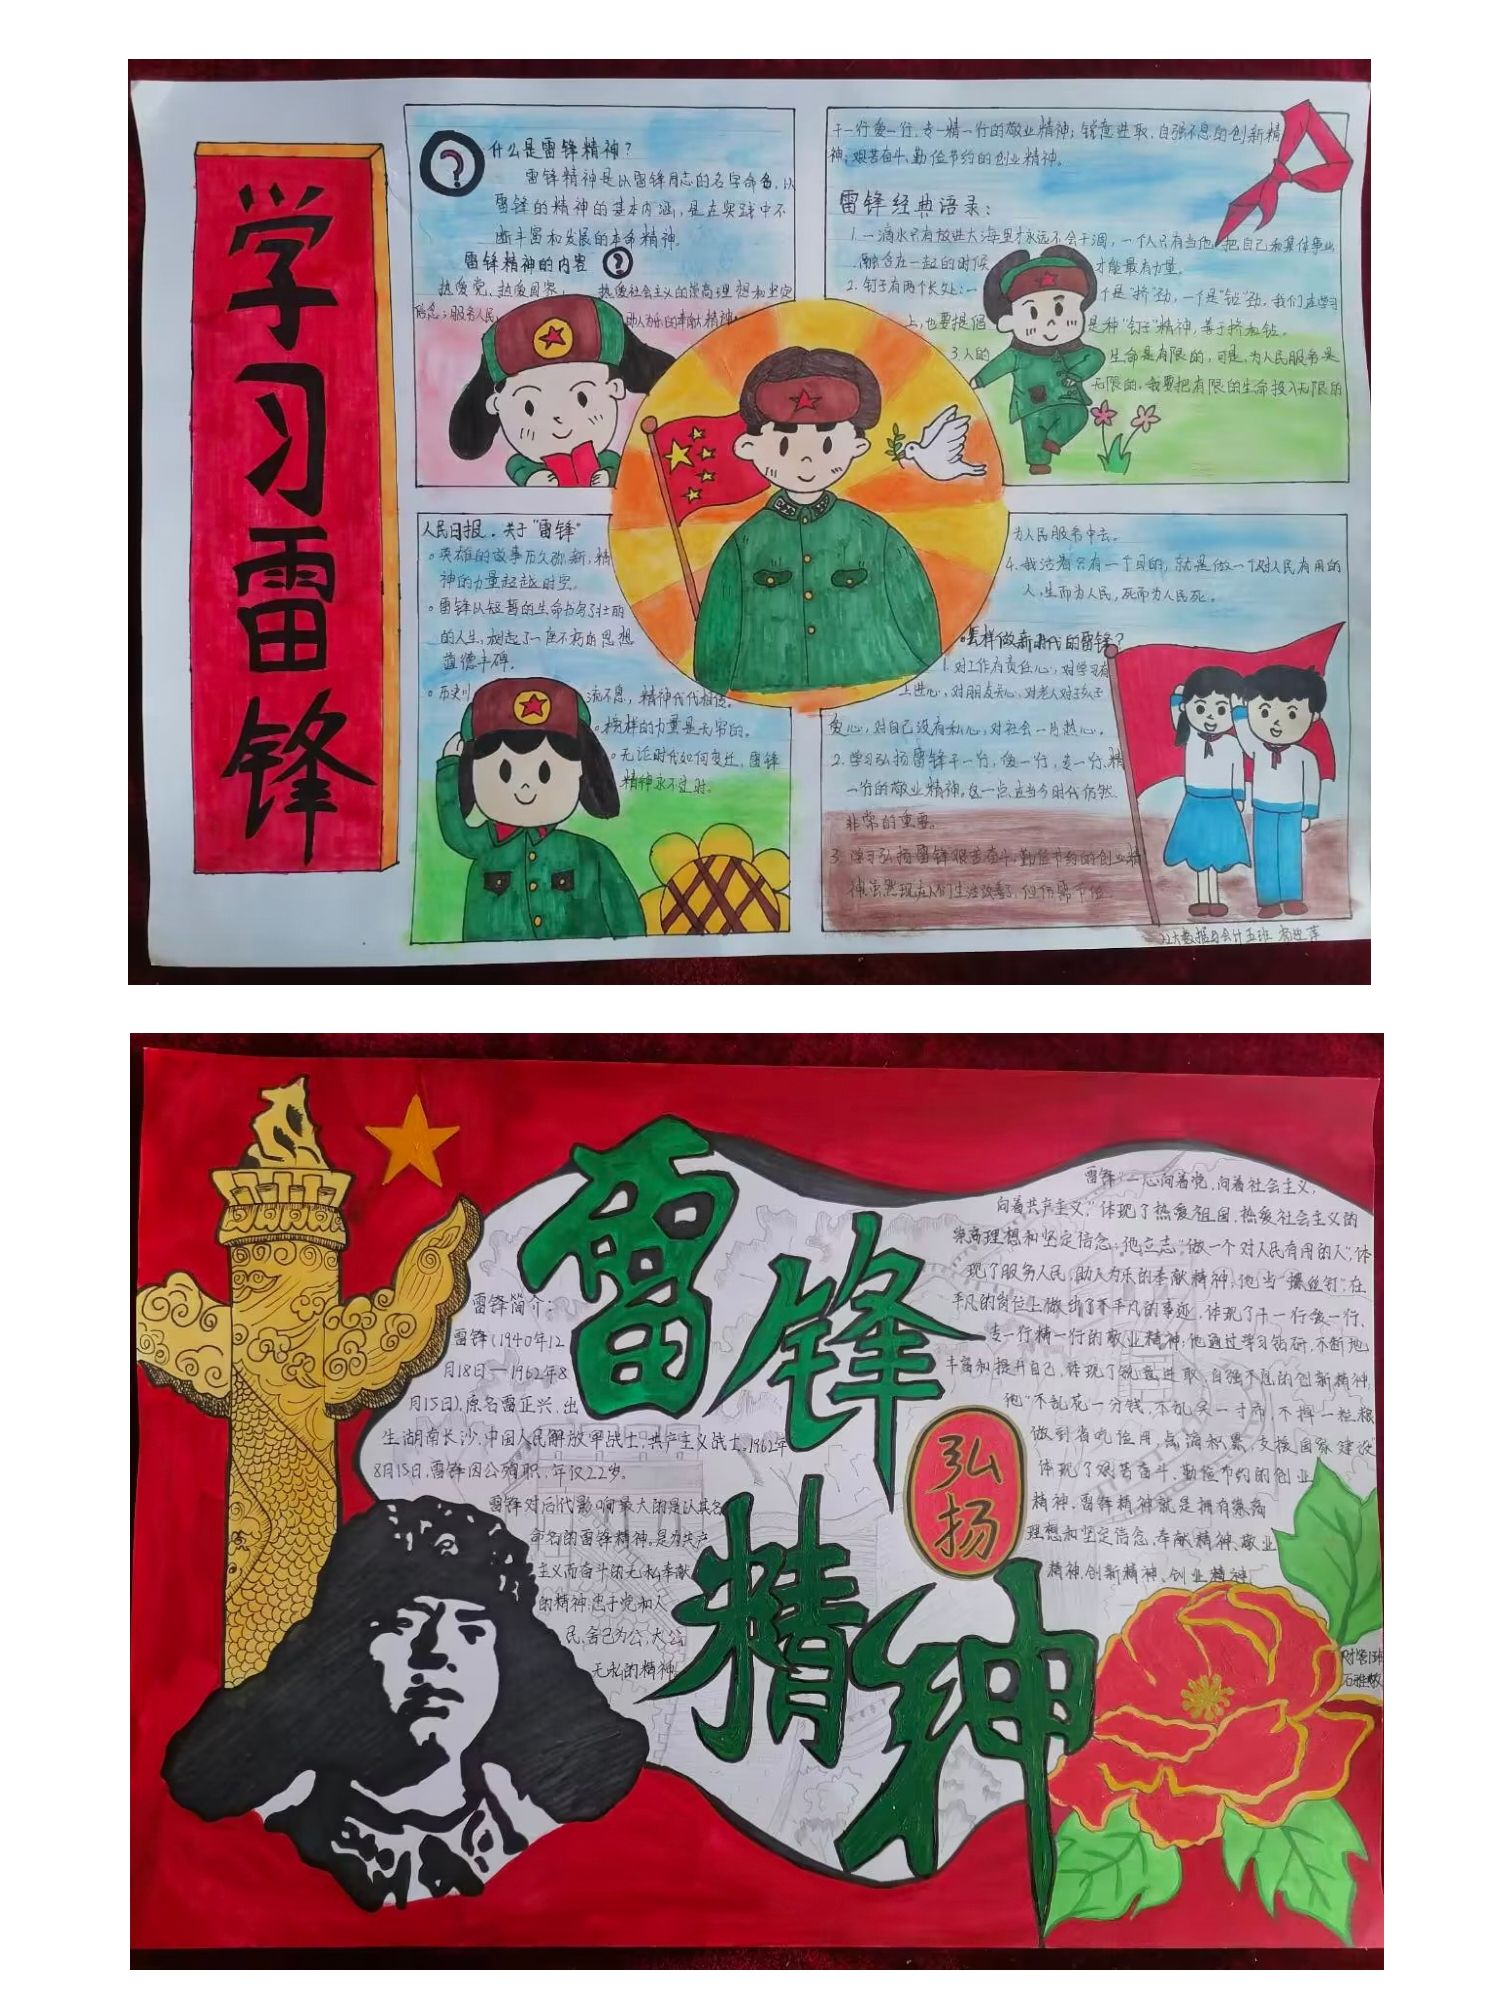 学习雷锋
什么是雷锋精神？
雷锋精神是以雷锋同志的名字命名，以
雷锋的精神的基本内涵，是在实践中不
断丰富和发展的本命精神。
雷锋精神的内容
热爱党、热爱国家， 热爱社会主义的崇高理想和坚定
信念；服务人民， 助人为乐的奉献精神；
干一行爱一行、专一精一行的敬业精神；锐意进取、自强不息的创新精
神；艰苦奋斗、勤俭节约的创业精神。
雷锋经典语录：
1.一滴水只有放进大海里才永远不会干涸，一个人只有当他 把自己和集体事业
融合在一起的时候 才能最有力量。
2.钉子有两个长处：一 个是“挤”劲，一个是“钻”劲，我们在学习
上，也要提倡 是种“钉子”精神，善于挤和钻。
3.人的 生命是有限的，可是，为人民服务是
无限的，我要把有限的生命投入无限的
为人民服务中去。
4.我活着只有一个目的，就是做一个对人民有用的
人，生而为人民，死而为人民死。
人民日报，关于“雷锋”
英雄的故事历久弥新，精
神的力量超越时空。
雷锋以短暂的生命书写了壮丽
的人生，树起了一座不朽的思想
道德丰碑。
历史川 流不息，精神代代相传。
榜样的力量是无穷的。
无论时代如何变迁，雷锋
精神永不过时。
怎样做新时代的雷锋？
1.对工作有责任心，对学习有
上进心，对朋友关心，对老人对孩子
爱心，对自己没有私心，对社会一片热心。
2.学习弘扬雷锋干一行，爱一行，专一行，精
一行的敬业精神，这一点在当今时代仍然
非常的重要。
3.学习弘扬雷锋艰苦奋斗，勤俭节约的创业精
神虽然现在人们生活改善了，但仍需节俭
22大数据与会计五班
雷锋精神
弘扬
雷锋简介：
雷锋（1940年12
月18日—1962年8
月15日），原名雷正兴，出
生湖南长沙，中国人民解放军战士，共产主义战士。1962年
8月15日，雷锋因公殉职，年仅22岁。
雷锋对后代影响最大的是以其名
命名的雷锋精神。是为共产
主义而奋斗的无私奉献
的精神；忠于党和人
民，舍己为公，大公
无私的精神
雷锋“一心向着党，向着社会主义，
向着共产主义，”体现了热爱祖国、热爱社会主义的
崇高理想和坚定信念；他立志“做一个对人民有用的人”，体
现了服务人民、助人为乐的奉献精神，他当“螺丝钉”在
平凡的岗位上做出了不平凡的事迹，体现了干一行爱一行、
专一行精一行的敬业精神；他通过学习钻研，不断地
丰富和提升自己，体现了锐意进取、自强不息的创新精神，
他“不乱花一分钱，不乱买一寸布，不掉一粒粮
做到省吃俭用，点滴积累，支援国家建设”
体现了艰苦奋斗、勤俭节约的创业
精神，雷锋精神就是拥有崇高
理想和坚定信念，奉献精神、敬业
精神、创新精神、创业精神